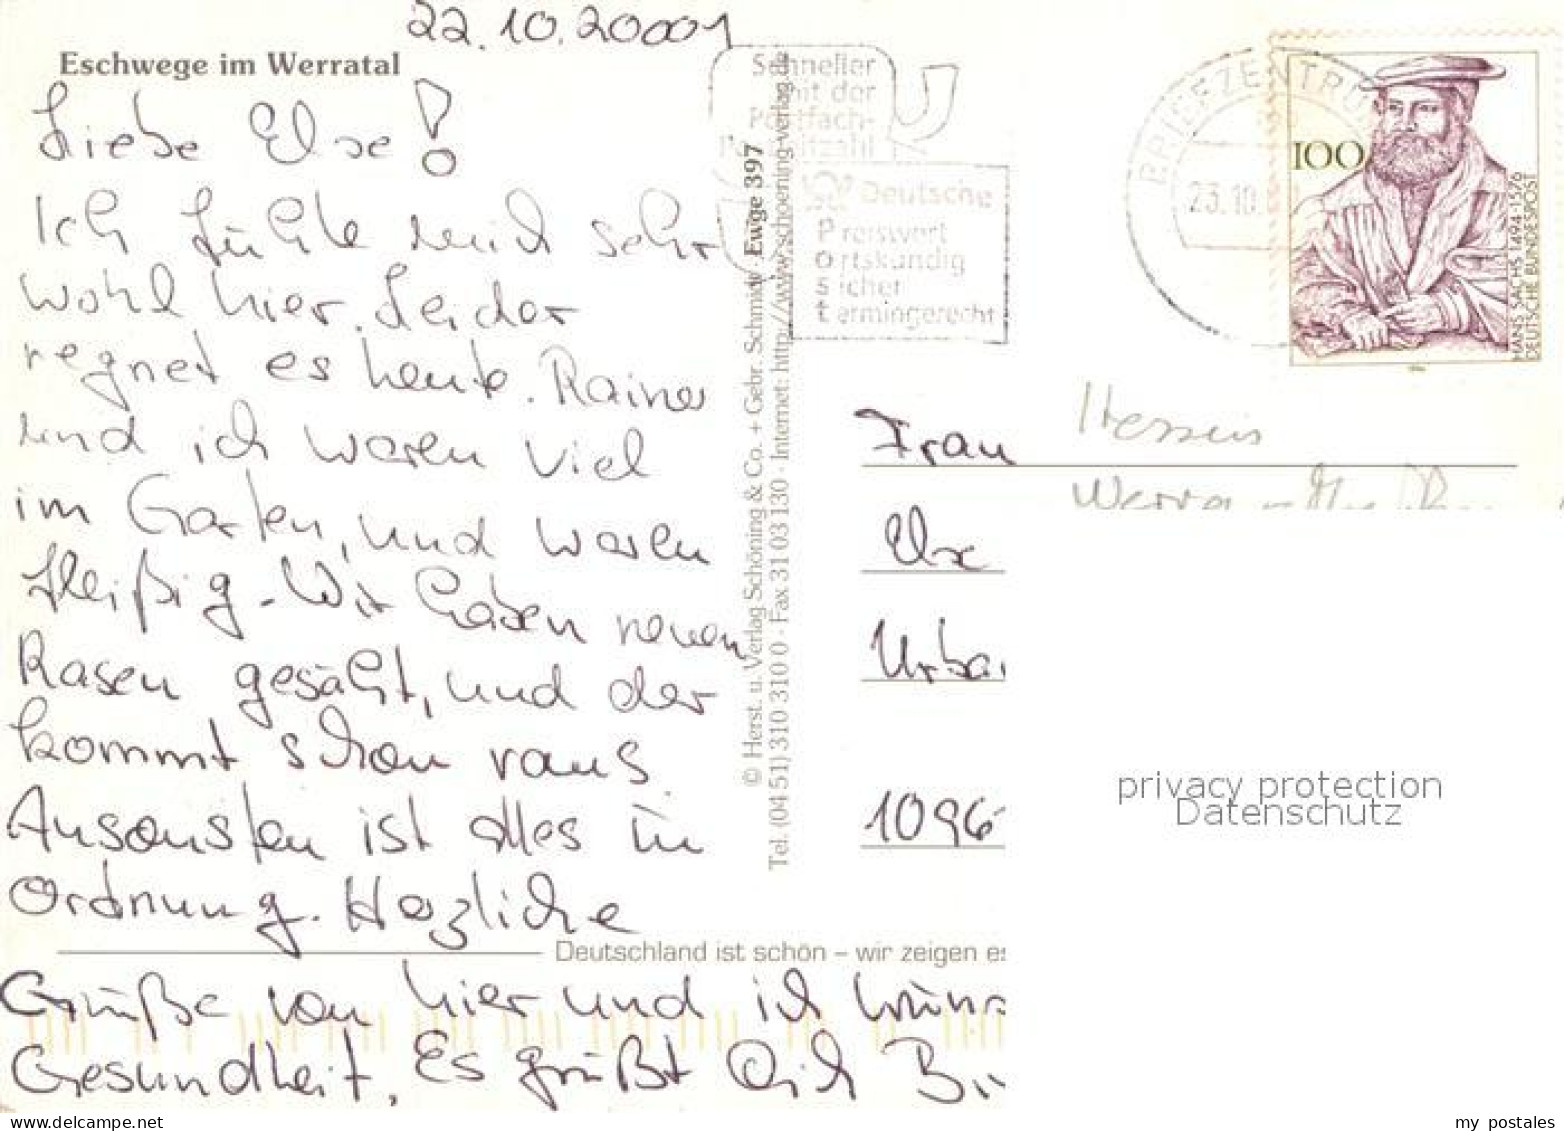 22.10.20001
Eschwege im Werratal
Liebe Else!
Ich fühle mich sehr
wohl hier. Leider
regnet es heute. Rainer
und ich waren viel
im Garten, und waren
fleißig. Wir haben neuen
Rasen gesäht, und der
kommt schon raus.
Ansonsten ist alles in
Ordnung. Herzliche
Grüße von hier und ich wüns
Gesundheit. Es grüßt Dich
© Herst. u. Verlag Schöning & Co. + Gebr. Schmidt · Ewge 397
Tel. (04 51) 310 310 0 · Fax 31 03 130 · Internet: http://www.schoening-verlag.de
Schneller
mit der
Postfach-
Deutsche
Preiswert
ortskundig
sicher
termingerecht
BRIEFZENTRU
23.10.
100
HANS SACHS 1494-1576
DEUTSCHE BUNDESPOST
Frau
Urba
1096
Deutschland ist schön – wir zeigen es
privacy protection
Datenschutz
my postales